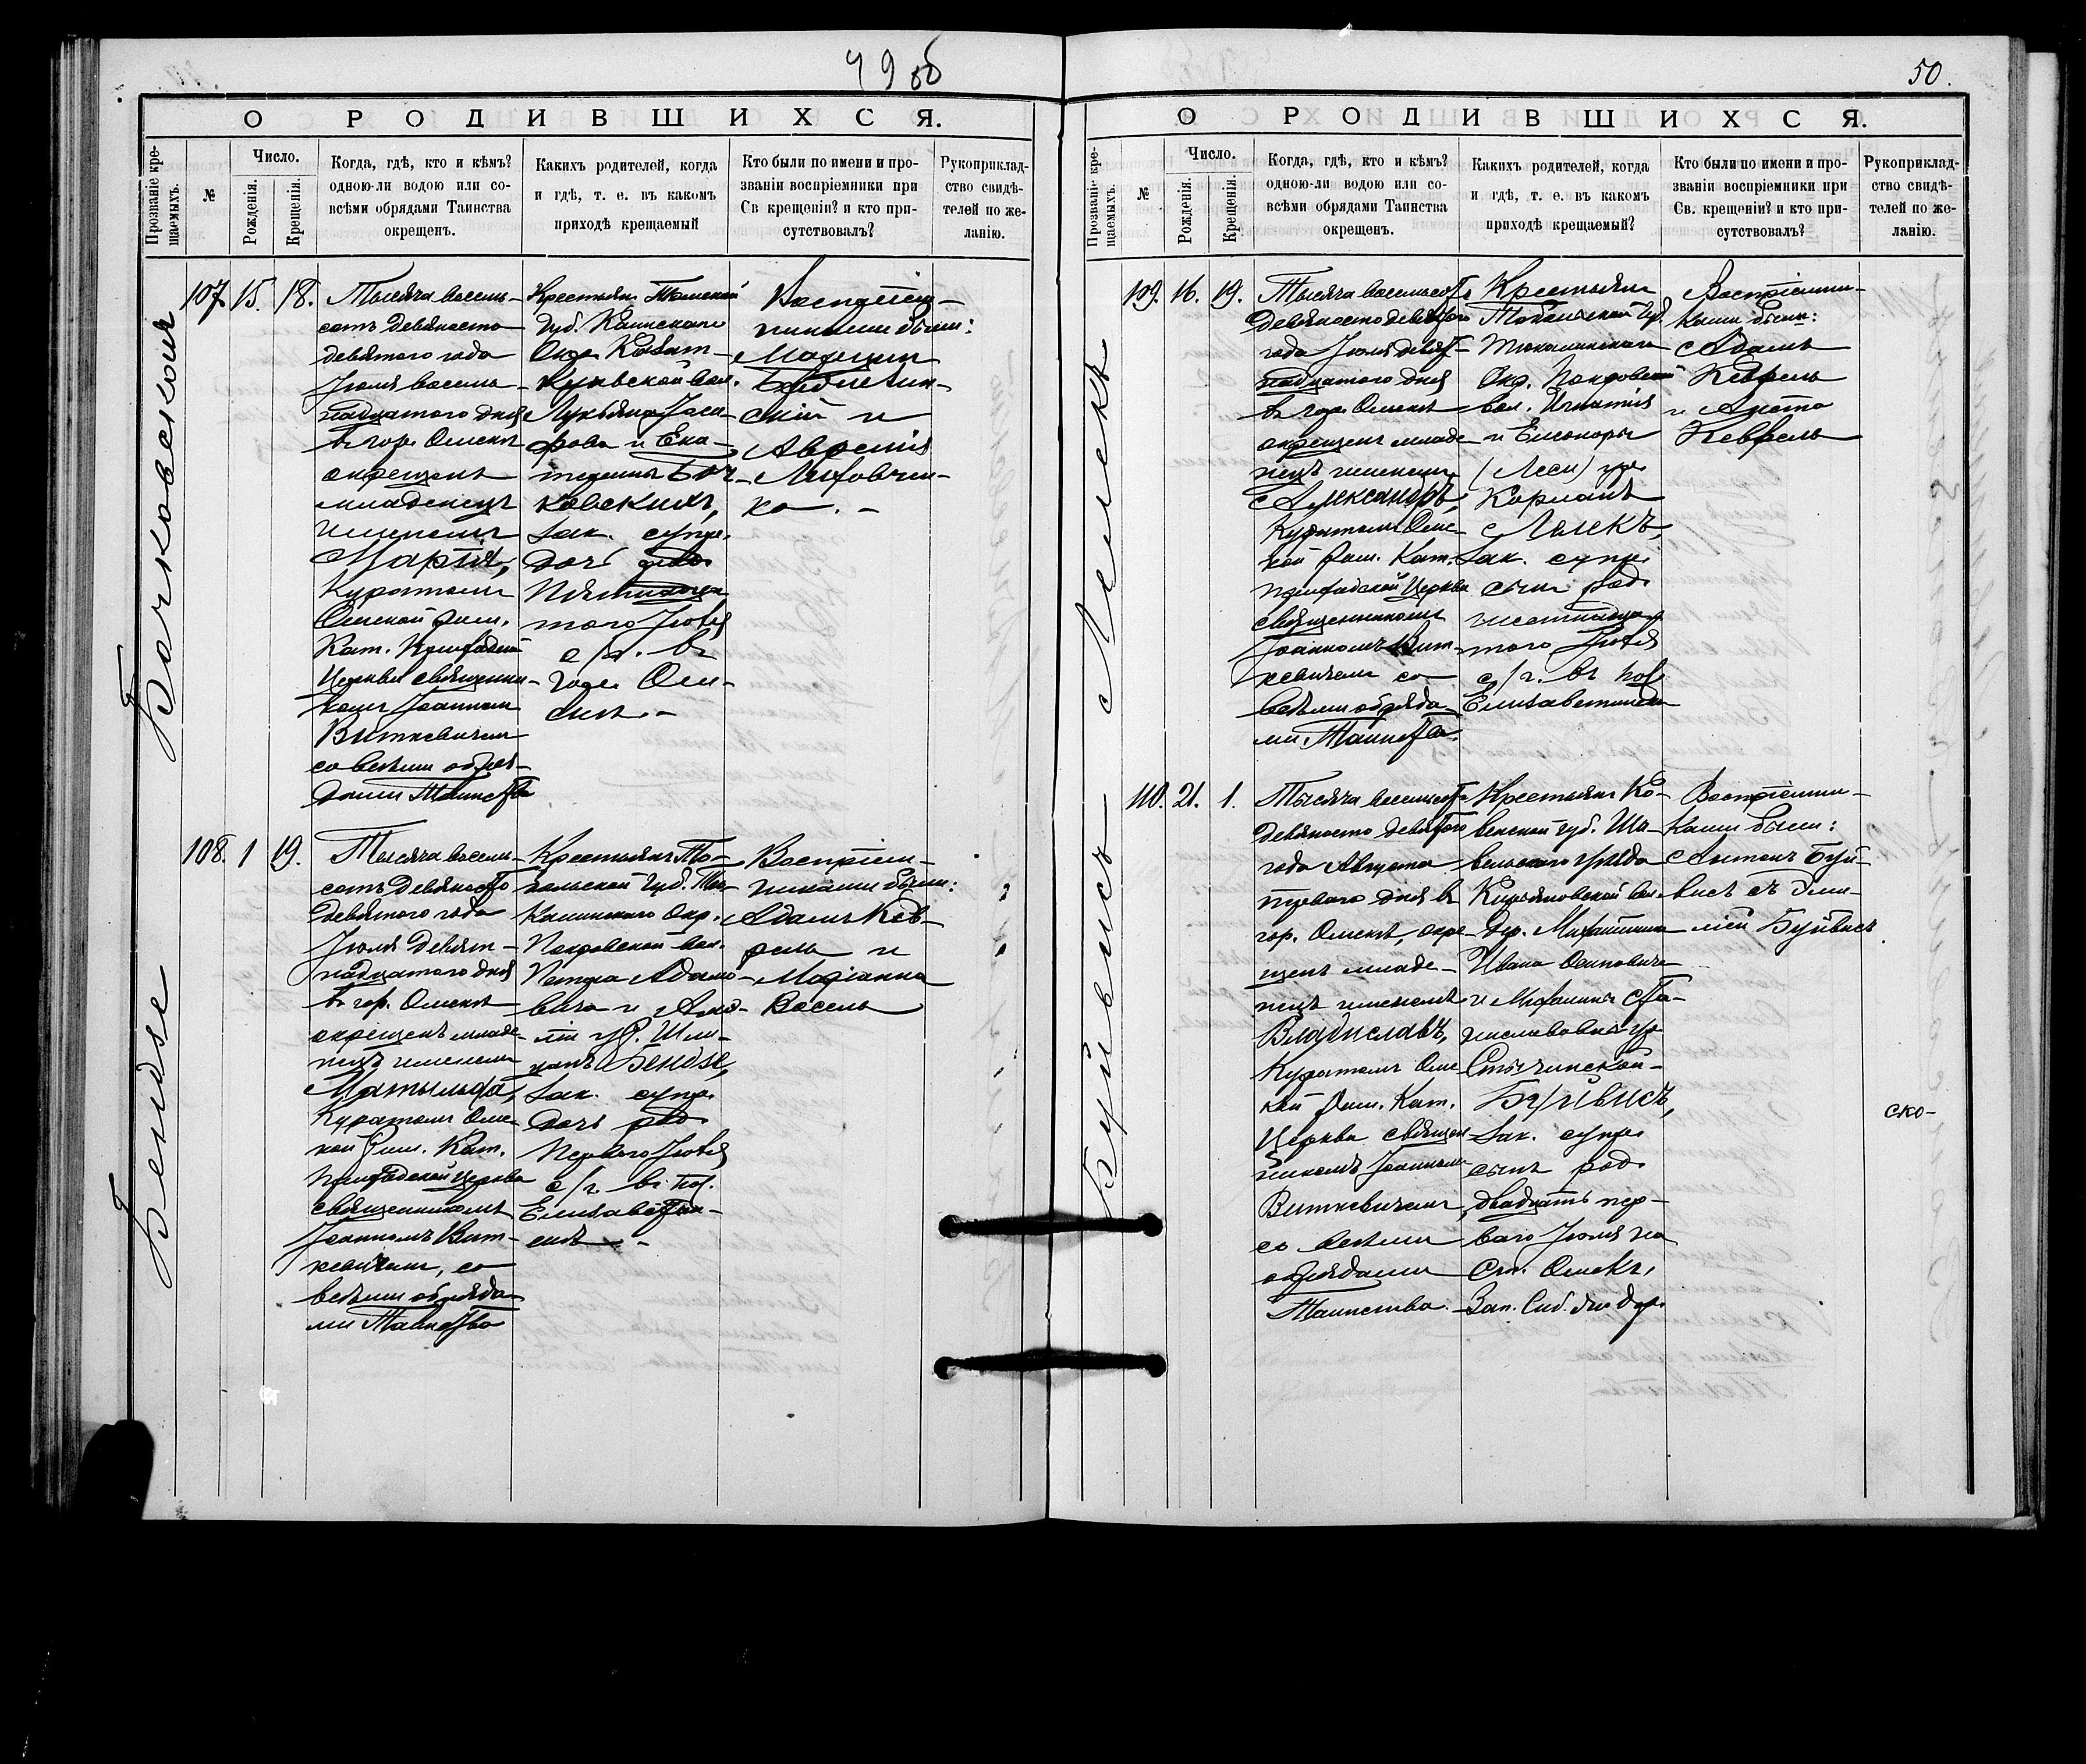 49 об
О РОДИВШИХСЯ.
Прозваніе кре-
щаемыхъ.
№
Число.
Рожденія.
Крещенія.
Когда, гдѣ, кто и кѣмъ?
одною-ли водою или со-
всѣми обрядами Таинства
окрещенъ.
Какихъ родителей, когда
и гдѣ, т. е. въ какомъ
приходѣ крещаемый
Кто были по имени и про-
званіи воспріемники при
Св крещеніи? и кто при-
сутствовалъ?
Рукоприклад-
ство свидѣ-
телей по же-
ланію.
Бочковскихъ
107. 15. 18.
Тысяча восемь-
сотъ девяносто
девятого года
Іюля восем-
надцатого дня
въ гор. Омскѣ
окрещенъ
младенецъ
именемъ
Марія,
Куратомъ
Омской Рим.
Кат. Приходской
Церкви священни-
комъ Іоанномъ
Виткевичемъ
со всѣми обря-
дами Таинства
Крестьянъ Томской
губ. Каинскаго
Окр.
вол.
и Ека-
терины Боч-
ковскихъ,
зак. супр.
дочь
Пятнадца-
того Іюля
с/г. въ
городѣ Ом-
скѣ. -
Воспріем-
никами были:
и
ко. -
Бендзе
108. 1 19.
Тысяча восемь-
сотъ девяносто
девятого года
Іюля девят-
надцатого дня
въ гор. Омскѣ
окрещенъ младе-
нецъ именемъ
Матильда,
Куратомъ Омс-
кой Рим. Кат.
Приходской Церкви
священникомъ
Іоанномъ Вит-
кевичемъ, со
всѣми обряда-
ми Таинства
Крестьянъ То-
больской губ. Тю-
калинскаго Окр.
Покровской вол.
Петра Адамо-
вича и
Бендзе,
зак. супр.
дочь род.
Перваго Іюля
с/г. въ пос.
Елизаветин-
скѣ -
Воспріем-
никами были:
Адамъ Кев-
рель и
Маріанна
Васель
50.
О РОДИВШИХСЯ.
Прозваніе кре-
щаемыхъ.
№
Число.
Рожденія.
Крещенія.
Когда, гдѣ, кто и кѣмъ?
одною-ли водою или со-
всѣми обрядами Таинства
окрещенъ.
Какихъ родителей, когда
и гдѣ, т. е. въ какомъ
приходѣ крещаемый?
Кто были по имени и про-
званіи воспріемники при
Св. крещеніи? и кто при-
сутствовалъ?
Рукоприклад-
ство свидѣ-
телей по же-
ланію.
Лелекъ
109. 16. 19.
Тысяча восемьсотъ
девяносто девятого
года Іюля девят-
надцатого дня
въ гор. Омскѣ
окрещенъ младе-
нецъ именемъ
Александръ,
Куратомъ Омс-
кой Рим. Кат.
Приходской Церкви
священникомъ
Іоанномъ Вит-
кевичемъ со
всѣми обряда-
ми Таинства.
Крестьянъ
Тобольской губ.
Тюкалинскаго
Окр. Покровской
вол. Игнатія
и Елеоноры
Лелекъ,
зак. супр.
сынъ род.
шестнадца-
того Іюля
с/г. въ пос.
Елизаветинскѣ
Воспріемни-
ками были:
Адамъ
Кеврель
и Анета
Кеврель
Буйвисъ
110. 21. 1.
Тысяча восемьсотъ
девяносто девятого
года Августа
перваго дня въ
гор. Омскѣ, окре-
щенъ младе-
нецъ именемъ
Владиславъ,
Куратомъ Омс-
кой Рим. Кат.
Церкви священ-
никомъ Іоанномъ
Виткевичемъ,
со всѣми
обрядами
Таинства. -
Крестьянъ Ко-
венской губ. Ша-
вельскаго уѣзда
вол.
дер.
Ивана Осиповича
и Михалины Ста-
ниславовны ур.
Буйвисъ,
зак. супр.
сынъ род.
двадцать пер-
ваго Іюля на
Ст. Омскъ,
Зап. Сиб. жел. дор.
Воспріемни-
ками были:
Антонъ Буй-
висъ съ Эми-
ліей Буйвисъ
ско-